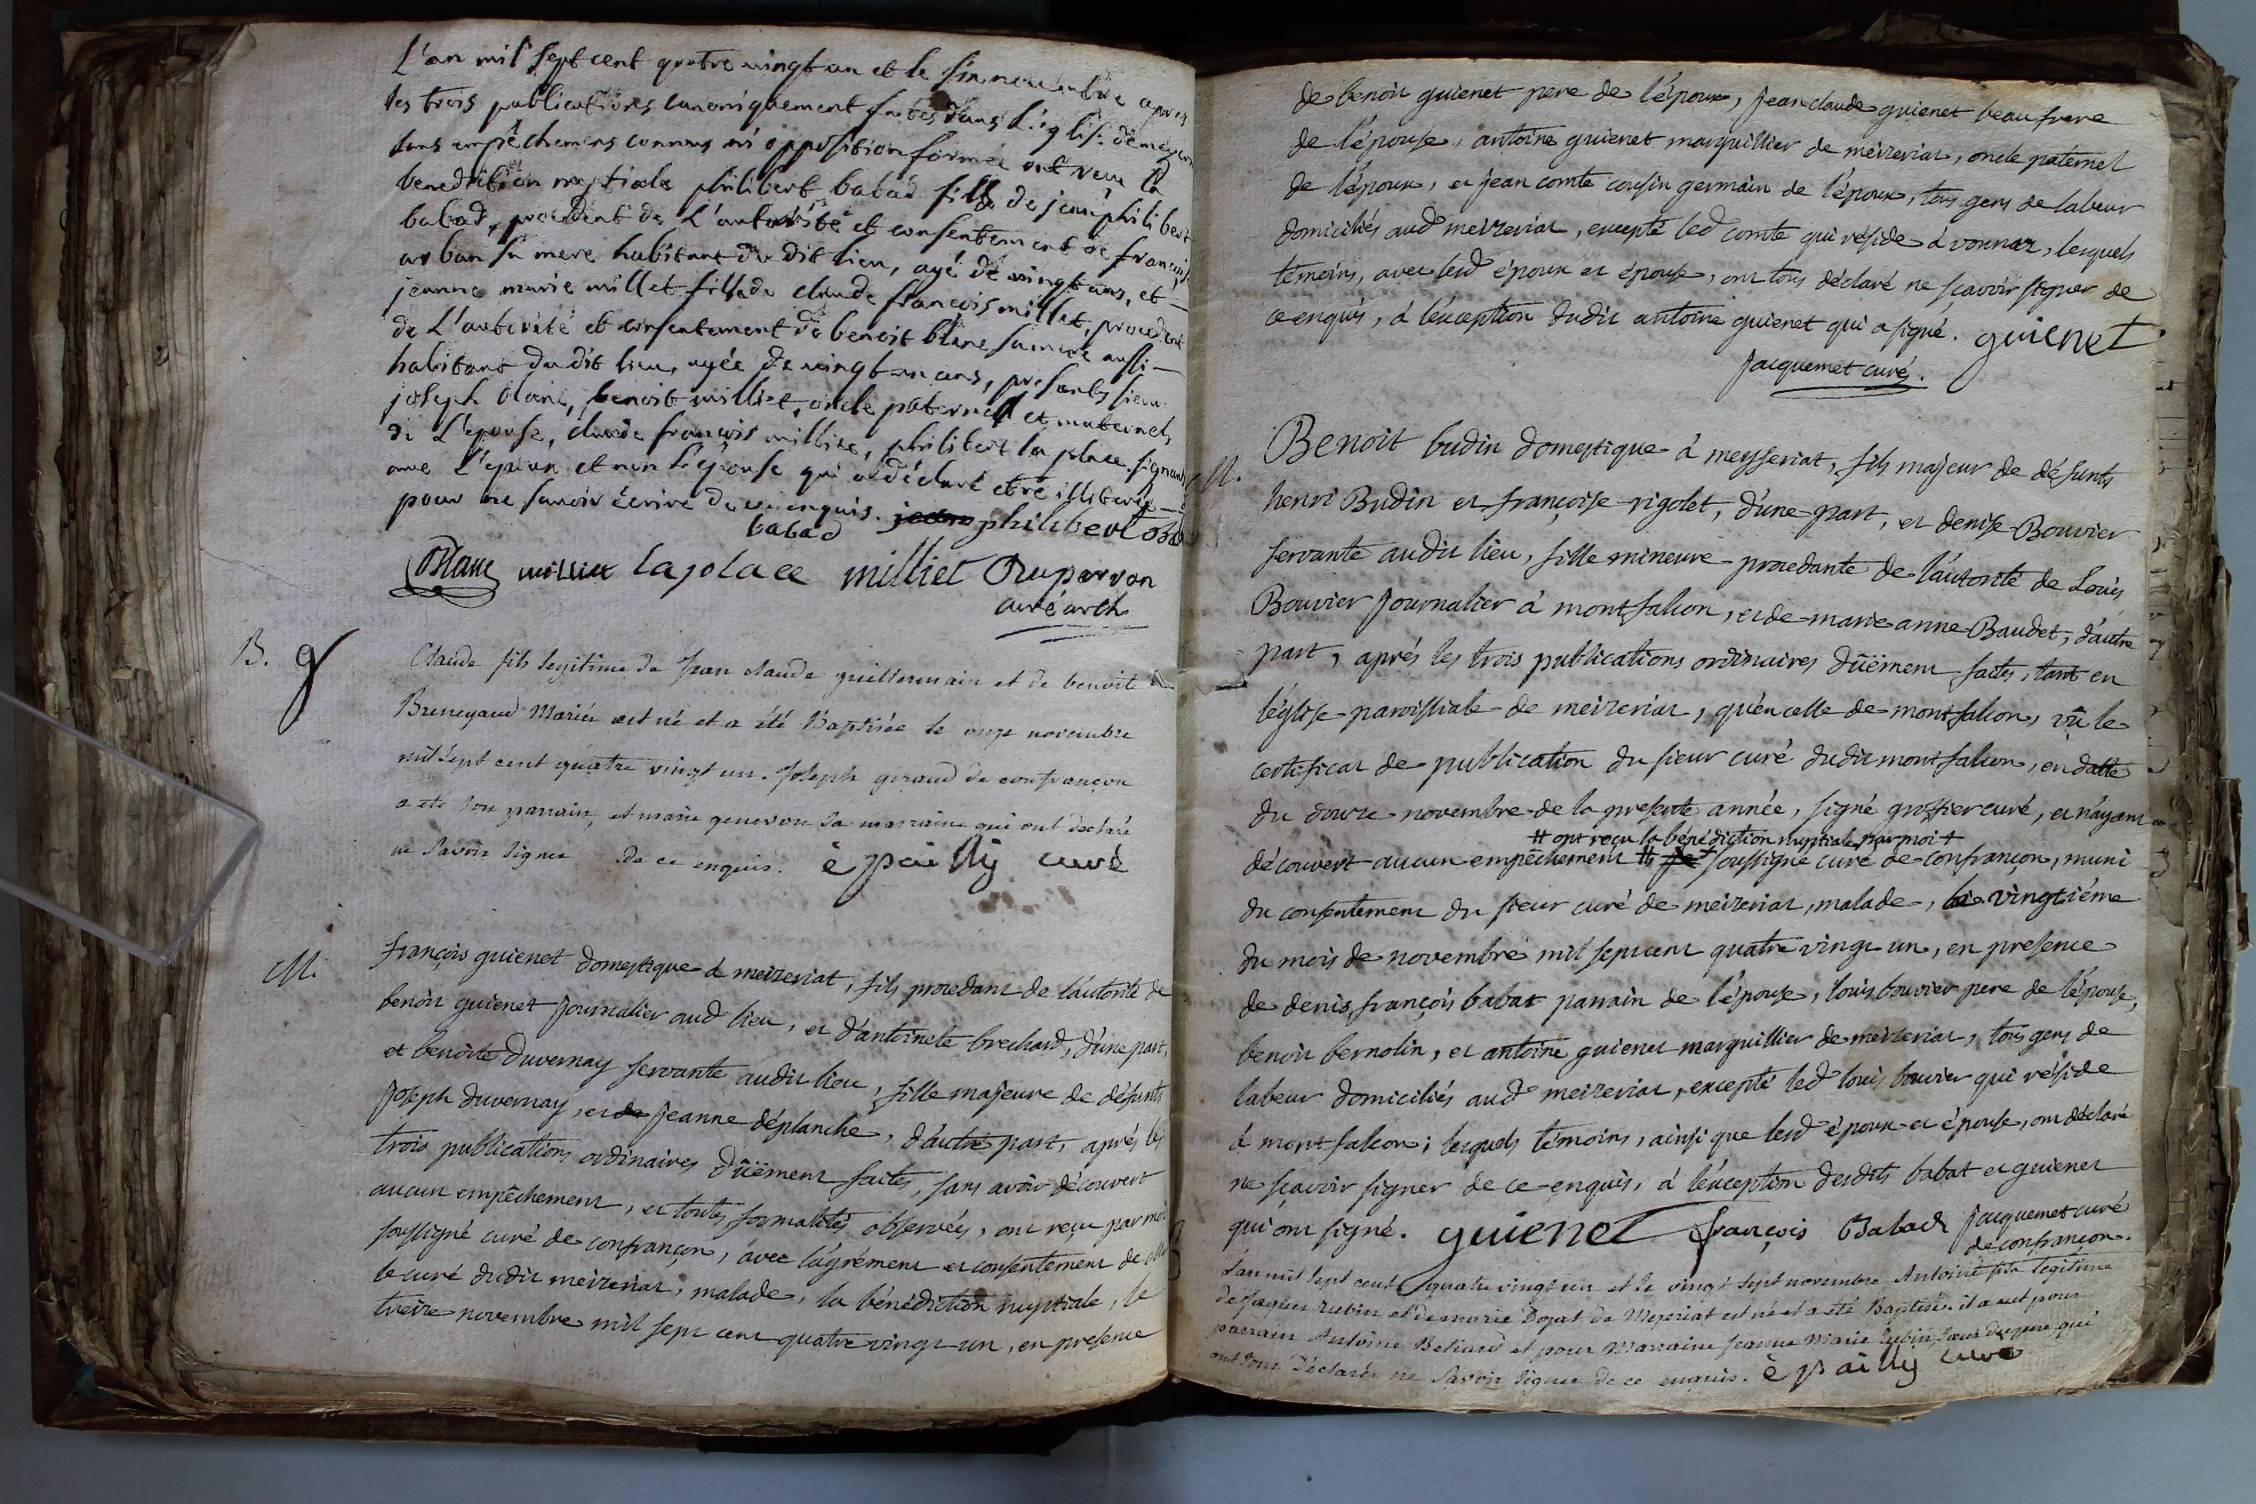 L'an mil sept cent quatre vingt un et le six novembre apres
les trois publications canoniquement faites dans L'eglise de
sans empêchemens connus ni opposition formée ont reçu la
benediction nuptiale philibert babad fils de jean philibert
babad, procedant de L'autorité et consentement de françoise
sa mere habitant du dit lieu, agé de vingt ans, et
jeanne marie millet fille de claude françois millet, procedant
de L'autorité et consentement de benoit blanc sa mere aussi
habitant du dit lieu, agée de vingt un ans, presents sieur
joseph blanc, benoit milliet, oncle paternel et maternel
de L'epouse, claude françois milliet, philibert la place signants
avec L'epoux et non L'epouse qui a déclaré être illiterée
pour ne savoir écrire de ce enquis. philibert
babad
Blanc milliet laplace milliet Duparvon
curé arch
B. g
Claude fils legitime de Jean claude guillermain et de benoite
Breneyaud Mariés est né et a été Baptisée le onze novembre
mil sept cent quatre vingt un. Joseph giraud de confrançon
a été son parrain, et marie genevon sa marraine qui ont declaré
ne savoir signer de ce enquis. épailly curé
M.
françois guienet domestique à meizeriat, fils procedant de l'autorité de
benoit guienet journalier aud lieu, et d'antoinete brechard, d'une part,
et benoite duvernay servante audit lieu, fille majeure de défunts
joseph duvernay, et de jeanne déplanche, d'autre part, aprés les
trois publications ordinaires dûëment faites, sans avoir découvert
aucun empêchement, et toutes formalités observées, ont reçu par moi
soussigné curé de confrançon, avec l'agrément et consentement de
le curé dudit meizeriat, malade, la bénédiction nuptiale, le
treize novembre mil sept cent quatre vingt un, en presence
de benoit guienet pere de l'époux, jean claude guienet beaufrere
de l'épouse, antoine guienet marguillier de meizeriat, oncle paternel
de l'époux, et jean comte cousin germain de l'époux, tous gens de labeur
domiciliés aud meizeriat, excepté led comte qui réside à vonnaz, lesquels
témoins, avec lesd époux et épouse, ont tous déclaré ne sçavoir signer de
ce enquis, à l'exception dudit antoine guienet qui a signé. guienet
jacquemet curé.
M.
Benoit budin domestique à meyseriat, fils majeur de défunts
henri Budin et françoise rigolet, d'une part, et denise Bouvier
servante audit lieu, fille mineure procedante de l'autorité de Louis
Bouvier journalier à montfalcon, et de marie anne Baudet, d'autre
part, aprés les trois publications ordinaires dûëment faites, tant en
l'église paroissiale de meizeriat, qu'en celle de montfalcon, vû le
certificat de publication du sieur curé dudit montfalcon, en datte
du douze novembre de la presente année, signé groffier curé, et n'ayant
# ont reçu la bénédiction nuptiale par moi +
découvert aucun empêchement # soussigné curé de confrançon, muni
du consentement du sieur curé de meizeriat, malade, le vingtiéme
du mois de novembre mil sept cent quatre vingt un, en presence
de denis françois babat parrain de l'épouse, louis bouvier pere de l'épouse,
benoit bernolin, et antoine guienet marguillier de meizeriat, tous gens de
labeur domiciliés aud meizeriat, excepté led louis bouvier qui réside
à montfalcon; lesquels témoins, ainsi que lesd époux et épouse, ont déclaré
ne sçavoir signer de ce enquis, à l'exception desdits babat et guienet
qui ont signé. guienet françois Babad jacquemet curé
de confrançon.
L'an mil sept cent quatre vingt un et le vingt sept novembre Antoine fils legitime
de Jaques rubin et de marie Dopat de Mezeriat est né et a été Baptisé. il a eut pour
parrain Antoine Betiard et pour Marraine Jeanne Marie rubin sœur du pere qui
ont tous Déclarés ne Savoir signer de ce enquis. épailly curé